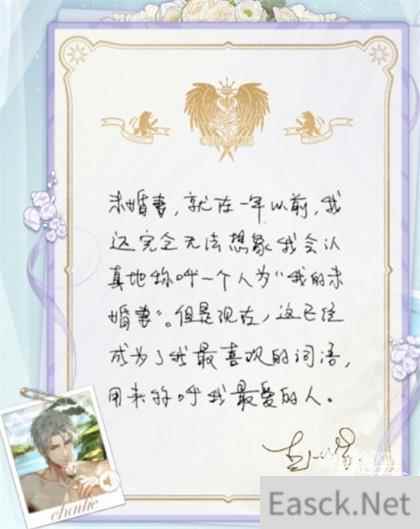 未婚妻，就在一年以前，我
还完全无法想象我会认
真地称呼一个人为“我的未
婚妻”。但是现在，这已经
成为了我最喜欢的词语，
用来称呼我最爱的人。
charlie
Easck.Net